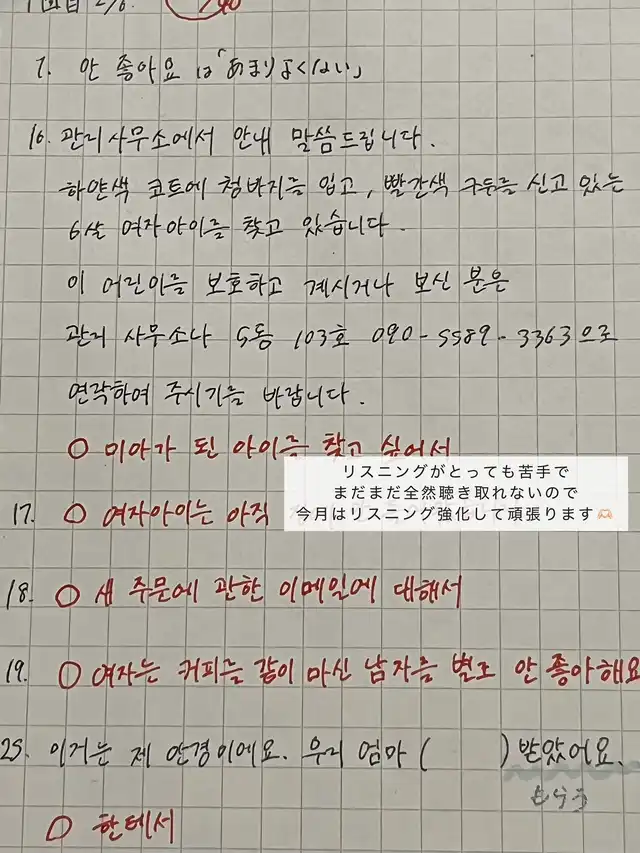 7. 안 좋아요 は「あまりよくない」
16. 관리사무소에서 안내 말씀드립니다.
하얀색 코트에 청바지를 입고, 빨간색 구두를 신고 있는
6살 여자아이를 찾고 있습니다.
이 어린이를 보호하고 계시거나 보신 분은
관리 사무소나 5동 103호 090-5589-3363으로
연락하여 주시기를 바랍니다.
○ 미아가 된 아이를 찾고 싶어서
リスニングがとっても苦手で
まだまだ全然聴き取れないので
今月はリスニング強化して頑張ります🫶🏻
17. ○ 여자아이는 아직
18. ○ 새 주문에 관한 이메일에 대해서
19. ○ 여자는 커피를 같이 마신 남자를 별로 안 좋아해요
25. 이거는 제 안경이에요. 우리 엄마 ( ) 받았어요.
もらう
○ 한테서